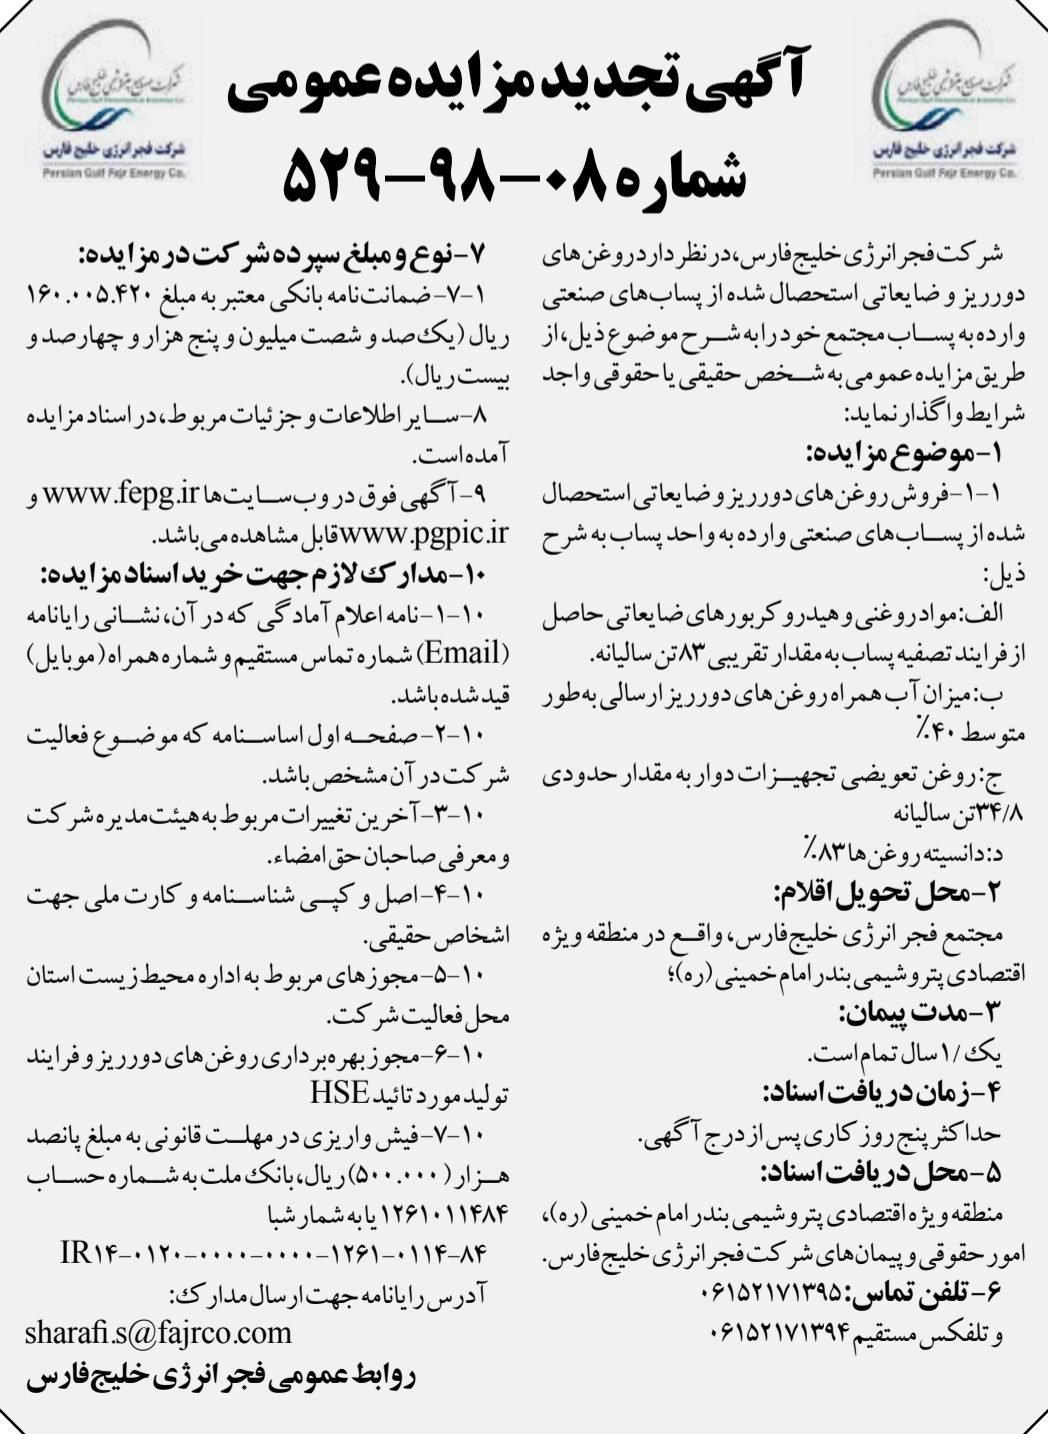 شرکت صنایع پتروشیمی خلیج فارس
شرکت فجر انرژی خلیج فارس
Persian Gulf Fajr Energy Co.
شرکت صنایع پتروشیمی خلیج فارس
شرکت فجر انرژی خلیج فارس
Persian Gulf Fajr Energy Co.
آگهی تجدید مزایده عمومی
شماره ۰۸-۹۸-۵۲۹
شرکت فجر انرژی خلیج‌فارس، در نظر دارد روغن‌های
دورریز و ضایعاتی استحصال شده از پساب‌های صنعتی
وارده به پساب مجتمع خود را به شرح موضوع ذیل، از
طریق مزایده عمومی به شخص حقیقی یا حقوقی واجد
شرایط واگذار نماید:
۱-موضوع مزایده:
۱-۱-فروش روغن‌های دورریز و ضایعاتی استحصال
شده از پساب‌های صنعتی وارده به واحد پساب به شرح
ذیل:
الف: مواد روغنی و هیدروکربورهای ضایعاتی حاصل
از فرایند تصفیه پساب به مقدار تقریبی ۸۳تن سالیانه.
ب: میزان آب همراه روغن‌های دورریز ارسالی به‌طور
متوسط ۴۰٪
ج: روغن تعویضی تجهیزات دوار به مقدار حدودی
۳۴/۸تن سالیانه
د: دانسیته روغن‌ها ۸۳٪
۲-محل تحویل اقلام:
مجتمع فجر انرژی خلیج‌فارس، واقع در منطقه ویژه
اقتصادی پتروشیمی بندر امام خمینی (ره)؛
۳-مدت پیمان:
یک /۱سال تمام است.
۴-زمان دریافت اسناد:
حداکثر پنج روز کاری پس از درج آگهی.
۵-محل دریافت اسناد:
منطقه ویژه اقتصادی پتروشیمی بندر امام خمینی (ره)،
امور حقوقی و پیمان‌های شرکت فجر انرژی خلیج‌فارس.
۶- تلفن تماس: ۰۶۱۵۲۱۷۱۳۹۵
و تلفکس مستقیم ۰۶۱۵۲۱۷۱۳۹۴
۷-نوع و مبلغ سپرده شرکت در مزایده:
۷-۱-ضمانت‌نامه بانکی معتبر به مبلغ ۱۶۰.۰۰۵.۴۲۰
ریال (یک‌صد و شصت میلیون و پنج هزار و چهارصد و
بیست ریال).
۸-سایر اطلاعات و جزئیات مربوط، در اسناد مزایده
آمده است.
۹-آگهی فوق در وب‌سایت‌ها www.fepg.ir و
www.pgpic.ir قابل مشاهده می‌باشد.
۱۰-مدارک لازم جهت خرید اسناد مزایده:
۱۰-۱-نامه اعلام آمادگی که در آن، نشانی رایانامه
(Email) شماره تماس مستقیم و شماره همراه (موبایل)
قید شده باشد.
۱۰-۲-صفحه اول اساسنامه که موضوع فعالیت
شرکت در آن مشخص باشد.
۱۰-۳-آخرین تغییرات مربوط به هیئت‌مدیره شرکت
و معرفی صاحبان حق امضاء.
۱۰-۴-اصل و کپی شناسنامه و کارت ملی جهت
اشخاص حقیقی.
۱۰-۵-مجوزهای مربوط به اداره محیط زیست استان
محل فعالیت شرکت.
۱۰-۶-مجوز بهره‌برداری روغن‌های دورریز و فرایند
تولید مورد تائید HSE
۱۰-۷-فیش واریزی در مهلت قانونی به مبلغ پانصد
هزار (۵۰۰.۰۰۰) ریال، بانک ملت به شماره حساب
۱۲۶۱۰۱۱۴۸۴ یا به شمار شبا
IR۱۴-۰۱۲۰-۰۰۰۰-۰۰۰۰-۱۲۶۱-۰۱۱۴-۸۴
آدرس رایانامه جهت ارسال مدارک:
sharafi.s@fajrco.com
روابط عمومی فجر انرژی خلیج‌فارس